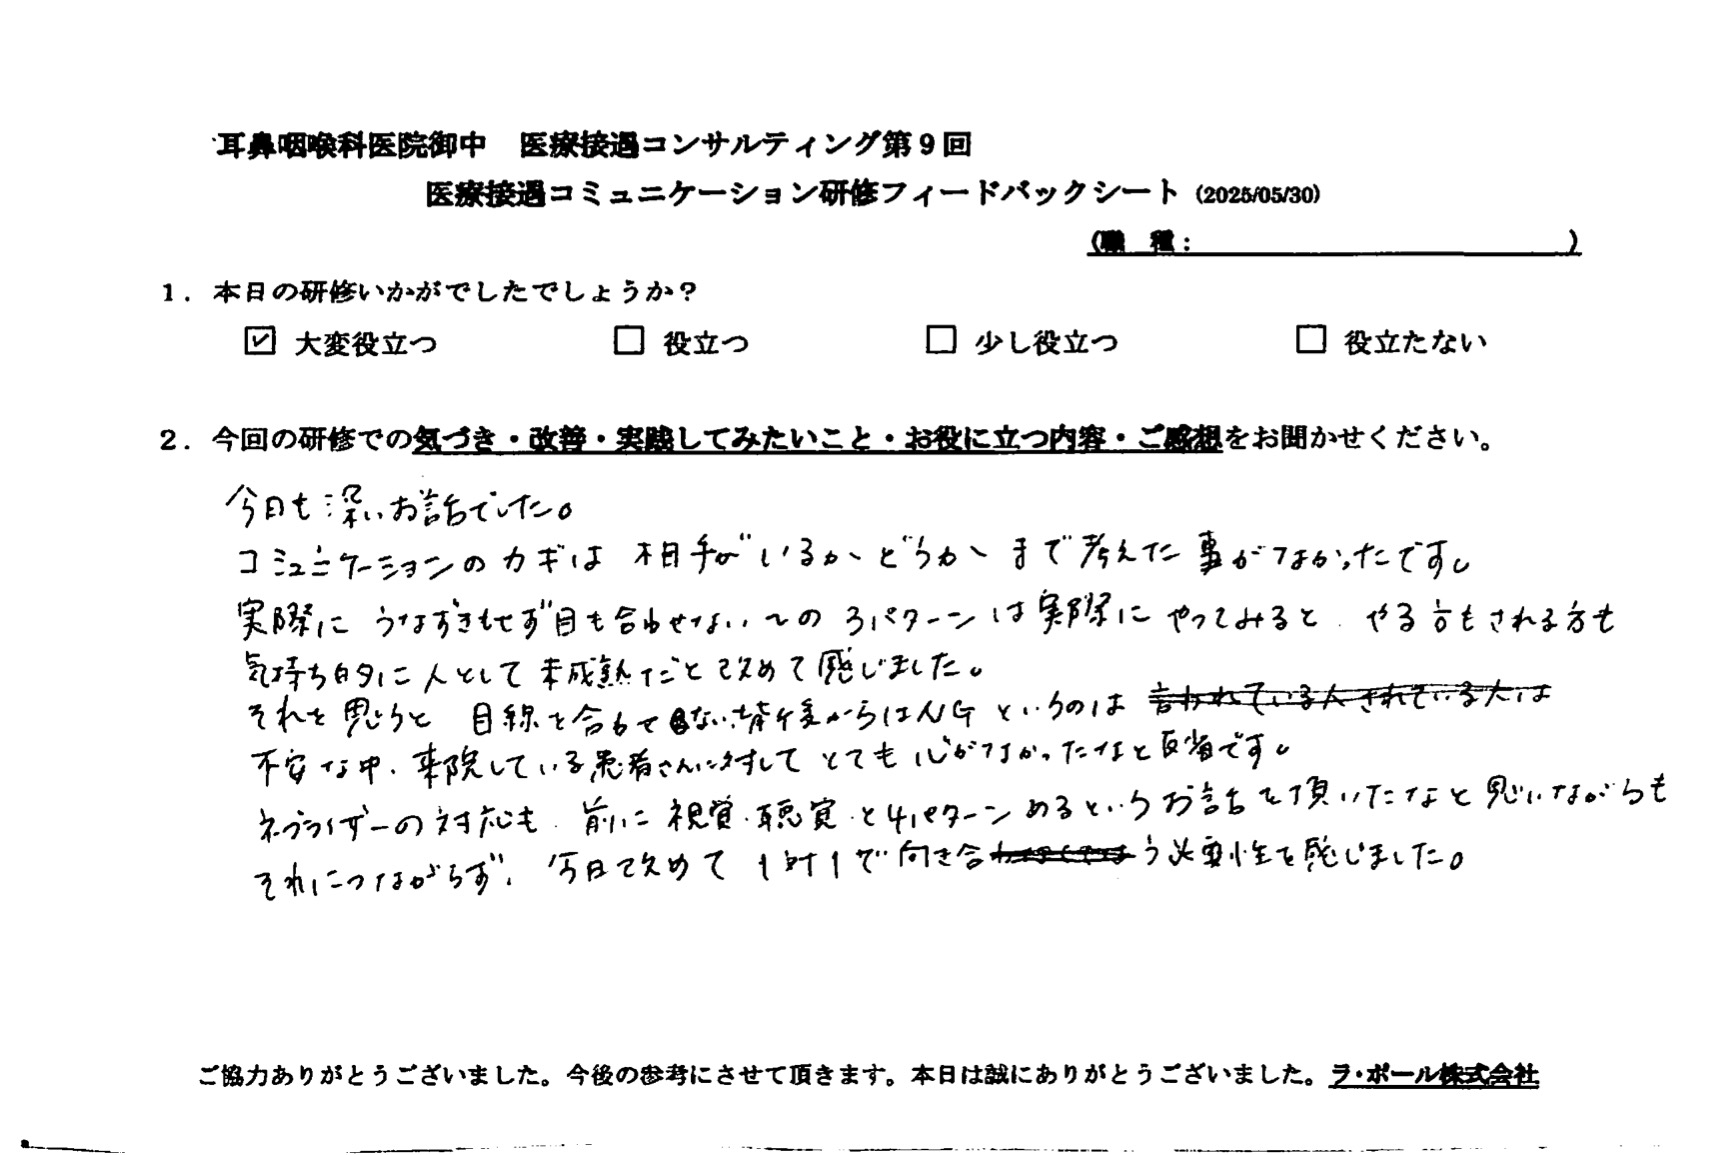 耳鼻咽喉科医院御中　医療接遇コンサルティング第９回
医療接遇コミュニケーション研修フィードバックシート (2025/05/30)
(職　種：　　　　　　　　　　)
１．本日の研修いかがでしたでしょうか？
☑ 大変役立つ　□ 役立つ　□ 少し役立つ　□ 役立たない
２．今回の研修での気づき・改善・実践してみたいこと・お役に立つ内容・ご感想をお聞かせください。
今日も深いお話でした。
コミュニケーションのカギは 相手がいるかどうかまで考えた事がなかったです。
実際に うなずきもせず目も合わせない、〜の 3パターンは実際に やってみると、やる方もされる方も
気持ち的に 人として 未成熟だと改めて感じました。
それを思うと 目線を合わせない、背後からはNG というのは 言われている人されている人は
不安な中、来院している患者さんに対して とても心がなかったなと反省です。
ネブライザーの対応も、前に 視覚・聴覚・と4パターンあるというお話を頂いたなと思いながらも
それにつながらず、今日改めて 1対1で向き合う必要性を感じました。
ご協力ありがとうございました。今後の参考にさせて頂きます。本日は誠にありがとうございました。ラ・ポール株式会社